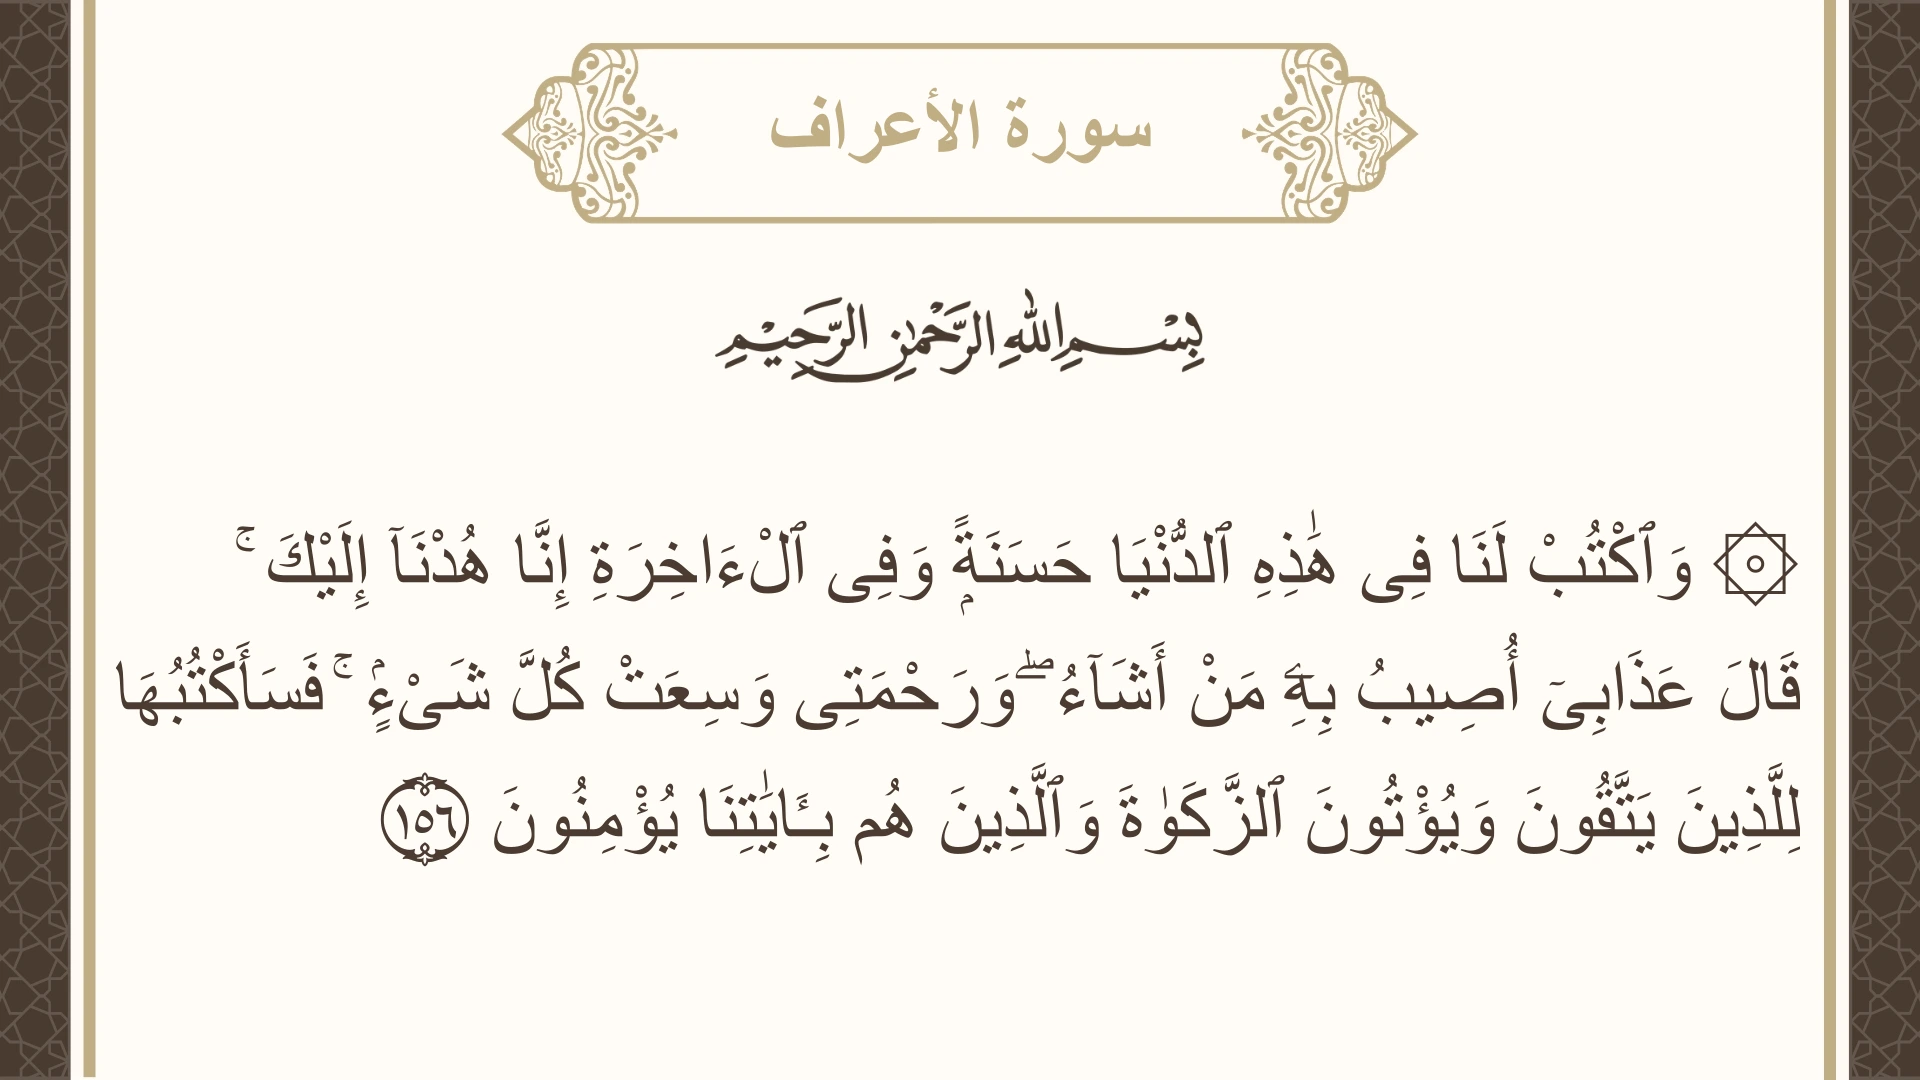 سورة الأعراف
بِسْمِ اللهِ الرَّحْمٰنِ الرَّحِيْمِ
۞ وَٱكْتُبْ لَنَا فِى هَٰذِهِ ٱلدُّنْيَا حَسَنَةًۭ وَفِى ٱلْءَاخِرَةِ إِنَّا هُدْنَآ إِلَيْكَ ۚ
قَالَ عَذَابِىٓ أُصِيبُ بِهِۦ مَنْ أَشَآءُ ۖ وَرَحْمَتِى وَسِعَتْ كُلَّ شَىْءٍۢ ۚ فَسَأَكْتُبُهَا
لِلَّذِينَ يَتَّقُونَ وَيُؤْتُونَ ٱلزَّكَوٰةَ وَٱلَّذِينَ هُم بِـَٔايَٰتِنَا يُؤْمِنُونَ ١٥٦